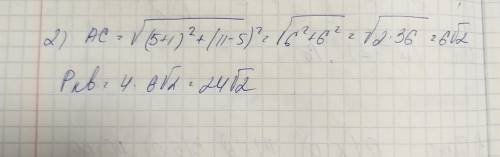 2) AC = √(5+1)² + (11-5)² = √6²+6² = √2·36 = 6√2
Pкв = 4·6√2 = 24√2